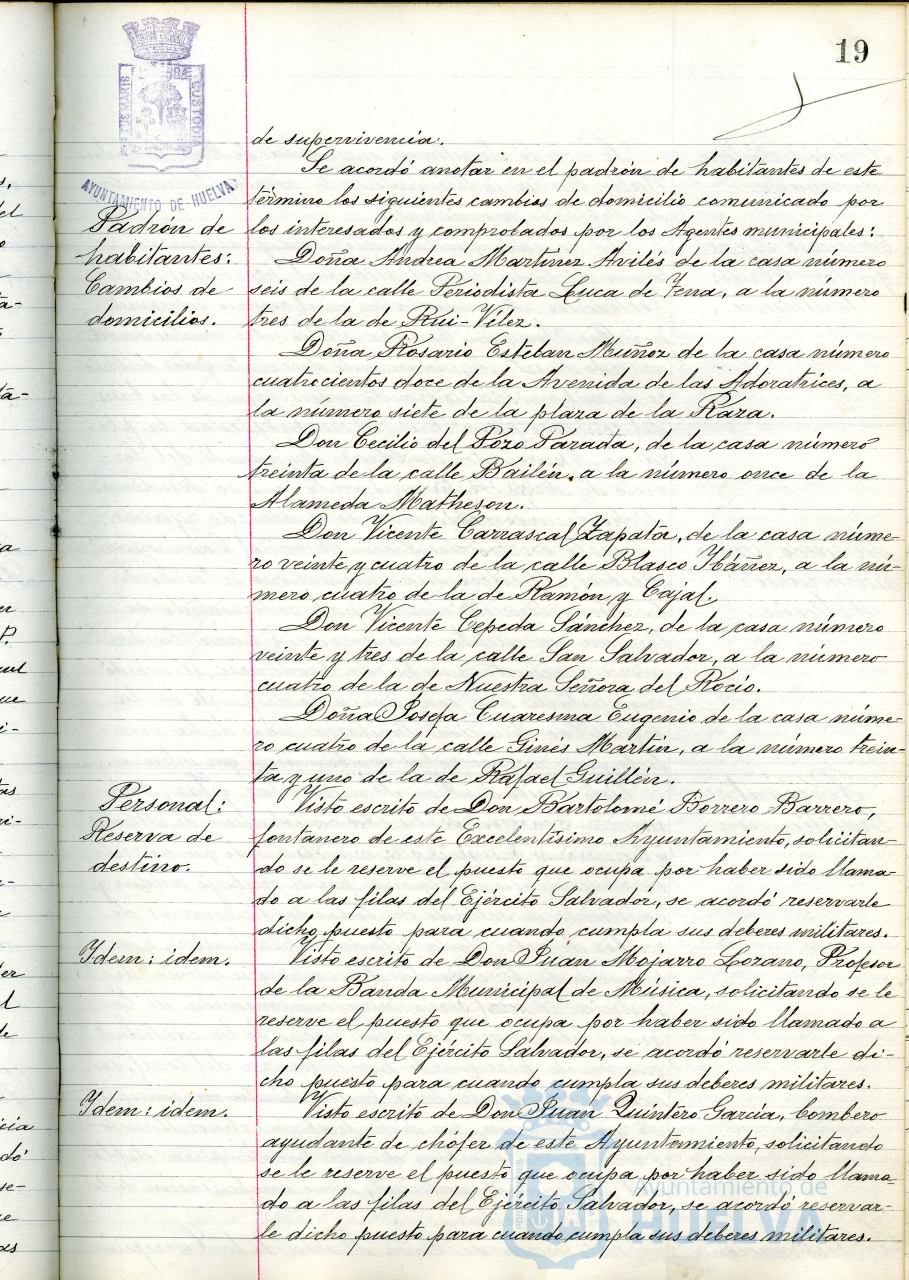 19
PORTUS MARIS
ET TERRÆ
CUSTODIA
AYUNTAMIENTO DE HUELVA
de supervivencia.
Se acordó anotar en el padrón de habitantes de este
término los siguientes cambios de domicilio comunicado por
Padrón de
los interesados y comprobados por los Agentes municipales:
habitantes:
Doña Andrea Martínez Avilés de la casa número
Cambios de
seis de la calle Periodista Luca de Tena, a la número
domicilios.
tres de la de Rui-Vélez.
Doña Rosario Esteban Muñoz de la casa número
cuatrocientos doce de la Avenida de las Adoratrices, a
la número siete de la plaza de la Raza.
Don Cecilio del Pozo Parada, de la casa número
treinta de la calle Bailén, a la número once de la
Alameda Matheson.
Don Vicente Carrascal Zapata, de la casa núme-
ro veinte y cuatro de la calle Blasco Ibáñez, a la nú-
mero cuatro de la de Ramón y Cajal.
Don Vicente Cepeda Sánchez, de la casa número
veinte y tres de la calle San Salvador, a la número
cuatro de la de Nuestra Señora del Rocío.
Doña Josefa Cuaresma Eugenio de la casa núme-
ro cuatro de la calle Ginés Martín, a la número trein-
ta y uno de la de Rafael Guillén.
Personal:
Visto escrito de Don Bartolomé Borrero Barrero,
Reserva de
fontanero de este Excelentísimo Ayuntamiento, solicitan-
destino.
do se le reserve el puesto que ocupa por haber sido llama-
do a las filas del Ejército Salvador, se acordó reservarle
dicho puesto para cuando cumpla sus deberes militares.
Idem: idem.
Visto escrito de Don Juan Mojarro Lozano, Profesor
de la Banda Municipal de Música, solicitando se le
reserve el puesto que ocupa por haber sido llamado a
las filas del Ejército Salvador, se acordó reservarle di-
cho puesto para cuando cumpla sus deberes militares.
Idem: idem.
Visto escrito de Don Juan Quintero García, bombero
ayudante de chófer de este Ayuntamiento, solicitando
se le reserve el puesto que ocupa por haber sido llama-
do a las filas del Ejército Salvador, se acordó reservar-
le dicho puesto para cuando cumpla sus deberes militares.
Ayuntamiento de
HUELVA